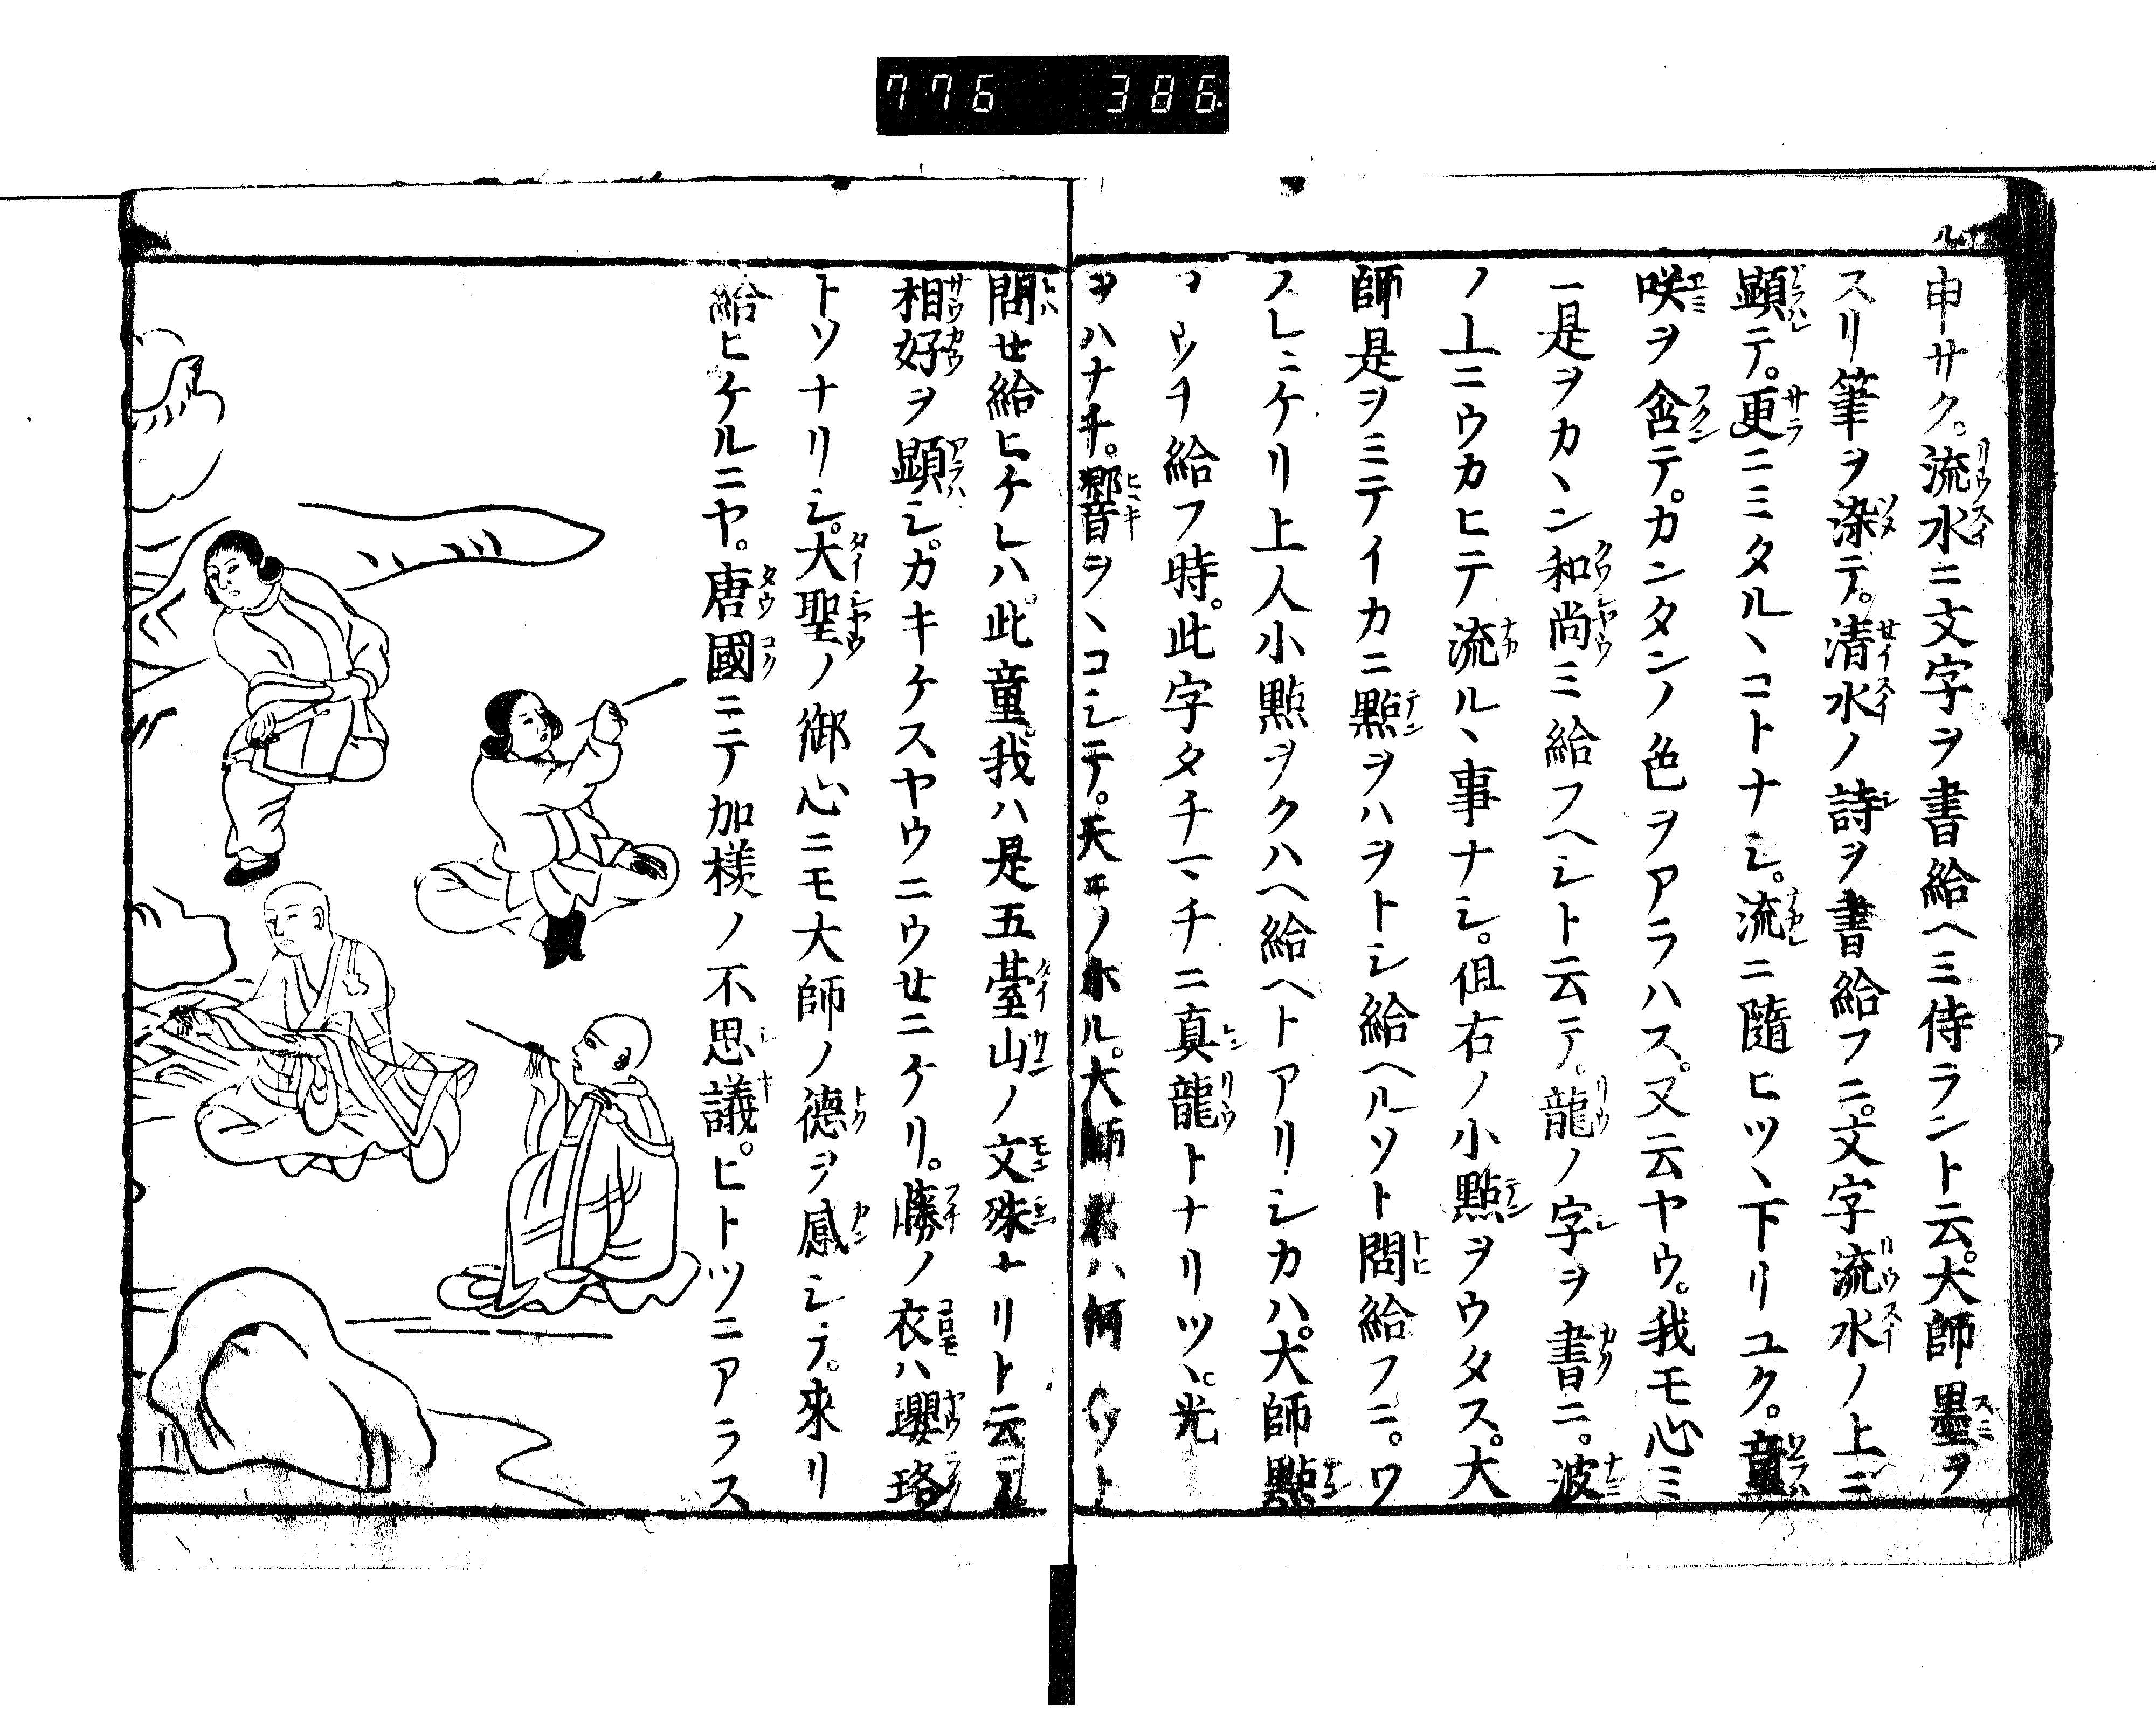 776 386
申サク。流水ニ文字ヲ書給ヘミ侍ラント云。大師墨ヲ
スリ筆ヲ染テ。清水ノ詩ヲ書給フニ。文字流水ノ上ニ
顕テ。更ニミタルヽコトナシ。流ニ随ヒツヽ下リユク。童
咲ヲ含テ。カンタンノ色ヲアラハス。又云ヤウ。我モ心ミ
ニ是ヲカヽン和尚ミ給フヘシト云テ。龍ノ字ヲ書ニ。波
ノ上ニウカヒテ流ルヽ事ナシ。但右ノ小點ヲウタス。大
師是ヲミテイカニ點ヲハヲトシ給ヘルソト問給フニ。ワ
スレニケリ上人小點ヲクハヘ給ヘトアリシカハ。大師點
ヲウチ給フ時。此字タチマチニ真龍トナリツヽ。光
ヲハナチ。響ヲヽコシテ。天エノホル。大師 ハ何 ソト
問せ給ヒケレハ。此童。我ハ是五臺山ノ文殊ナリト云テ
相好ヲ顕シ。カキケスヤウニウせニケリ。藤ノ衣ハ瓔珞
トソナリシ。大聖ノ御心ニモ大師ノ德ヲ感シテ。來リ
給ヒケルニヤ。唐國ニテ加樣ノ不思議。ヒトツニアラス